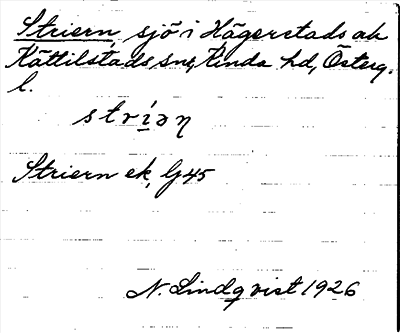 Striern, sjö i Hägerstads ock
Kättilstads snr, Kinda hd, Österg.
l.
stríǝη
Striern ek, Gj 45
N. Lindqvist 1926